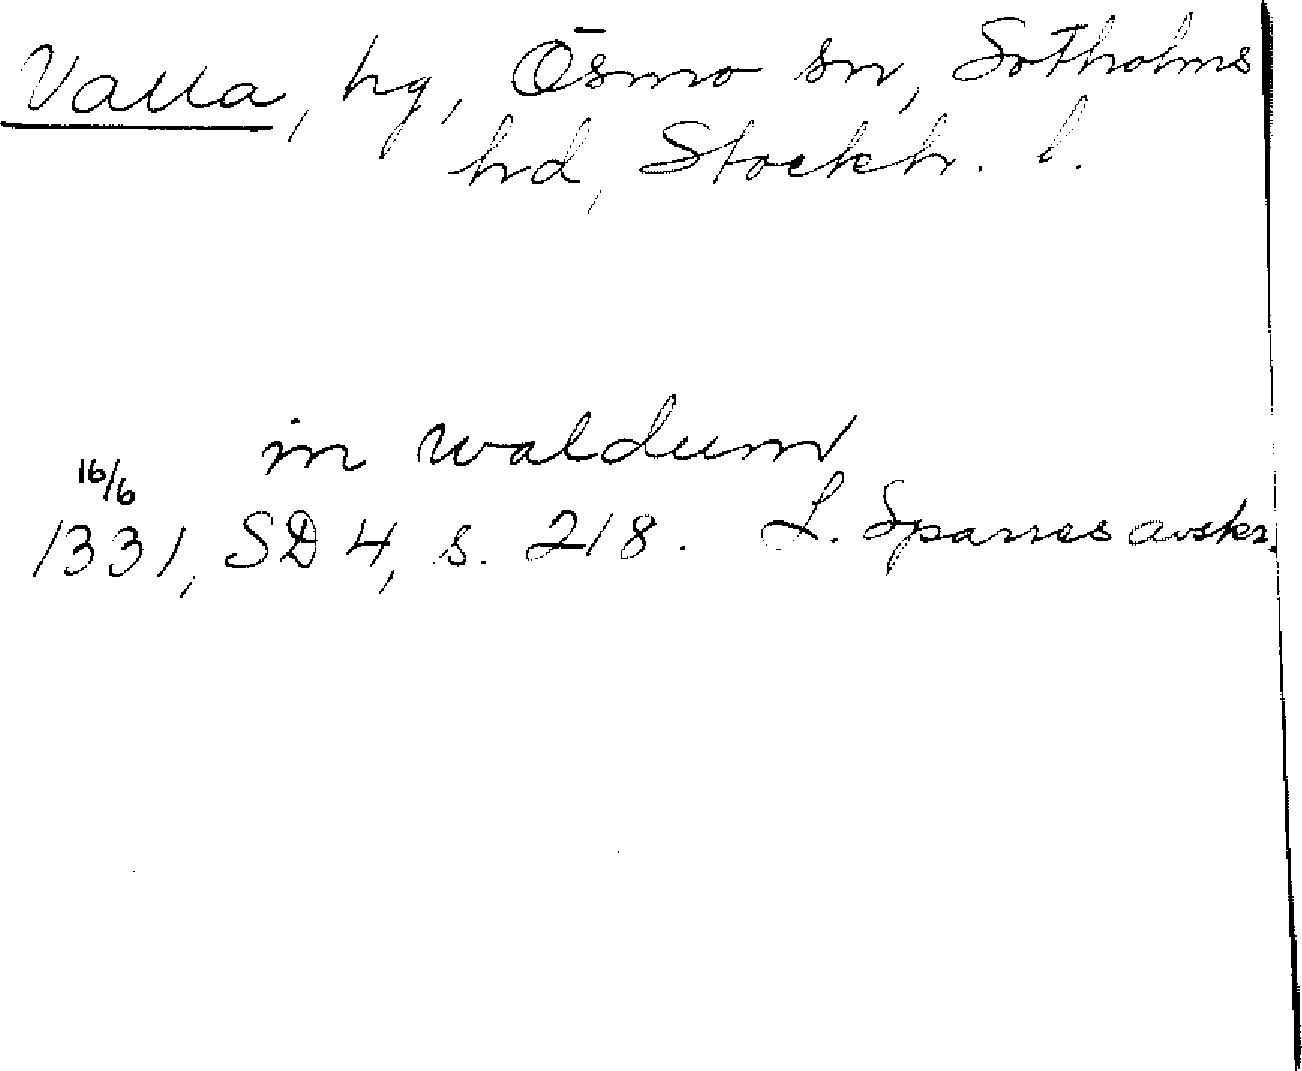 Valla, hg, Ösmo sn, Sotholms
hd, Stockh. l.
in waldum
16/6
1331, SD 4, s. 218. L. Sparres avskr.